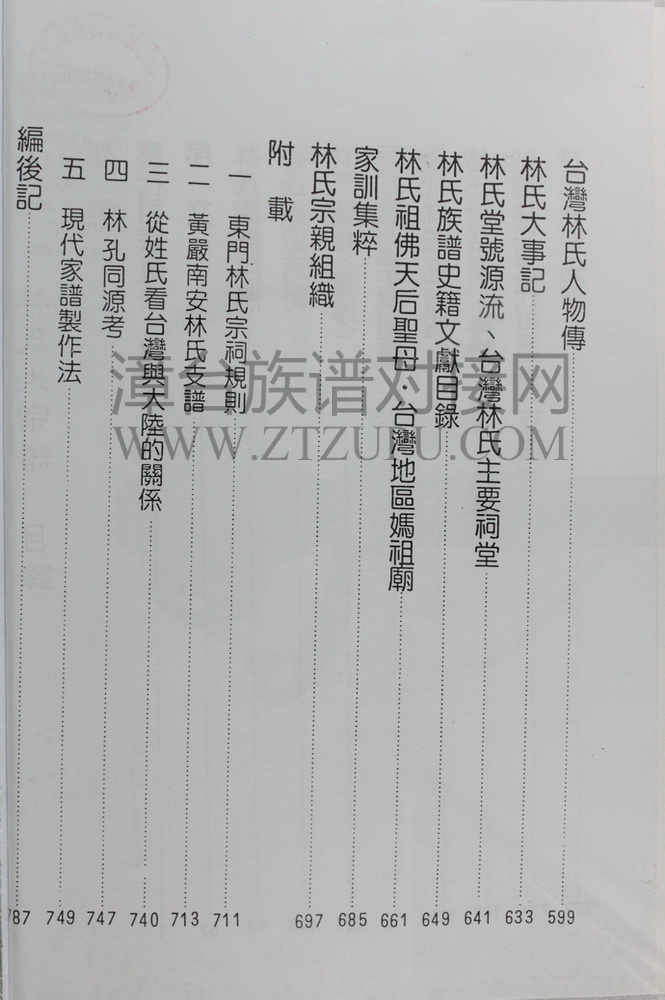 台灣林氏人物傳 599
林氏大事記 633
林氏堂號源流、台灣林氏主要祠堂 641
林氏族譜史籍文獻目錄 649
林氏祖佛天后聖母·台灣地區媽祖廟 661
家訓集粹 685
林氏宗親組織 697
附載
一 東門林氏宗祠規則 711
二 黃嚴南安林氏支譜 713
三 從姓氏看台灣與大陸的關係 740
四 林孔同源考 747
五 現代家譜製作法 749
編後記 787
漳台族谱对接网
WWW.ZTZUPU.COM